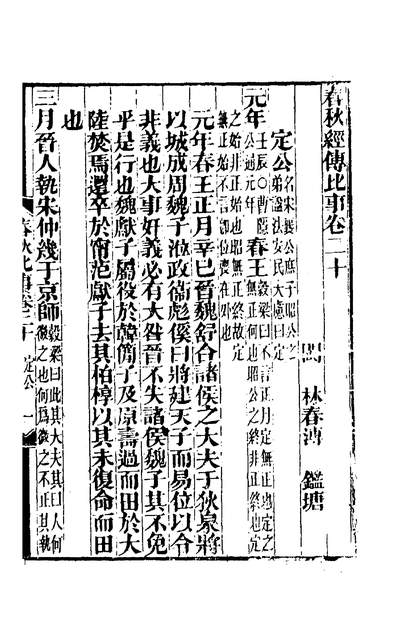 春秋經傳比事卷二十
閩 林春溥 鑑塘
定公名宋襄公庶子昭公之弟諡法安民大慮曰定
元年壬辰○曹隱公通元年春王穀梁曰不言正月定無正也定之無正何也昭公之終非正終也定之始非正始也昭無正終故定無正始不言卽位喪在外也
元年春王正月辛巳晉魏舒合諸侯之大夫于狄泉將
以城成周魏子涖政衞彪傒曰將建天子而易位以令
非義也大事奸義必有大咎晉不失諸侯魏子其不免
乎是行也魏獻子屬役於韓簡子及原壽過而田於大
陸焚焉還卒於甯范獻子去其柏椁以其未復命而田
也
三月晉人執宋仲幾于京師穀梁曰此其大夫其曰人何也微之也何爲微之不正其執
春秋比事卷二十 定公 一